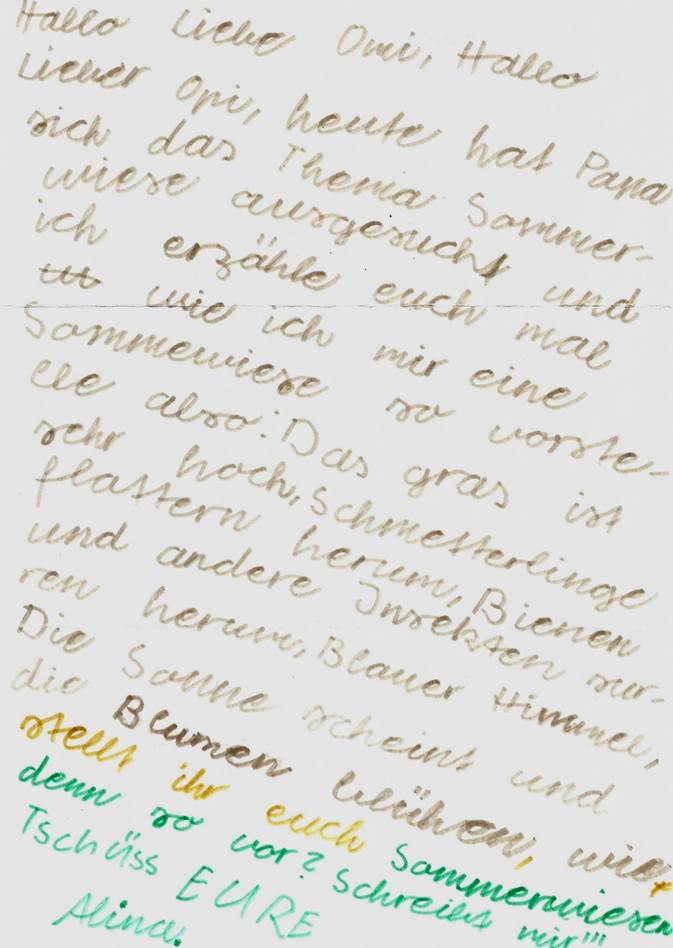 Hallo Liebe Omi, Hallo
Lieber Opi, heute hat Papa
sich das Thema Sommer-
wiese ausgesucht und
ich erzähle euch mal
wie ich mir eine
Sommewiese so vorste-
lle also: Das gras ist
sehr hoch, Schmetterlinge
flattern herum, Bienen
und andere Insekten sur-
ren herum, Blauer Himmel,
Die Sonne scheint und
die Blumen blühen, wie
stellt ihr euch Sommerwiesen
denn so vor? Schreibt mir!!!
Tschüss EURE
Alina.